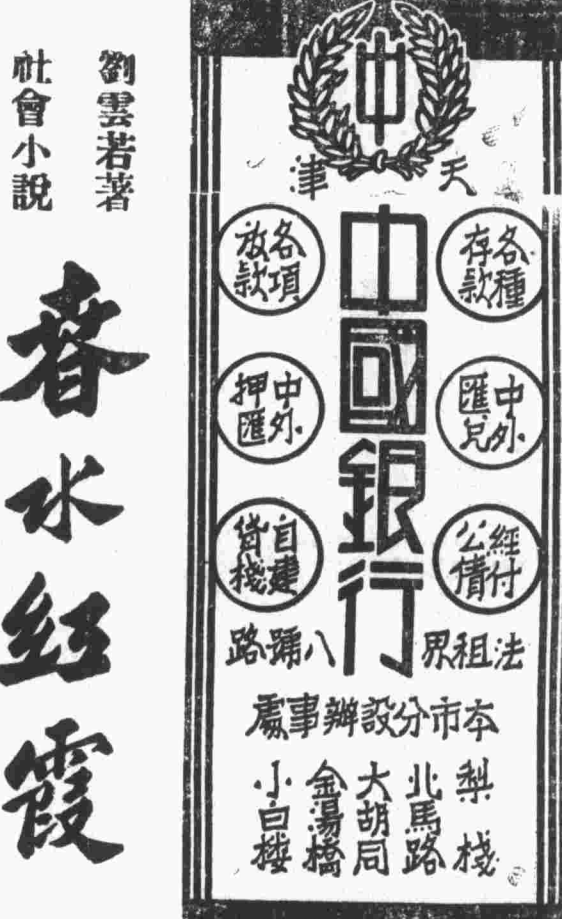 中
天津
中國銀行
各種存款
中外匯兌
經付公債
各項放款
中外押匯
自建貨棧
法租界八號路
本市分設辦事處
梨棧
北馬路
大胡同
金湯橋
小白樓
劉雲若著
社會小說
春水紅霞